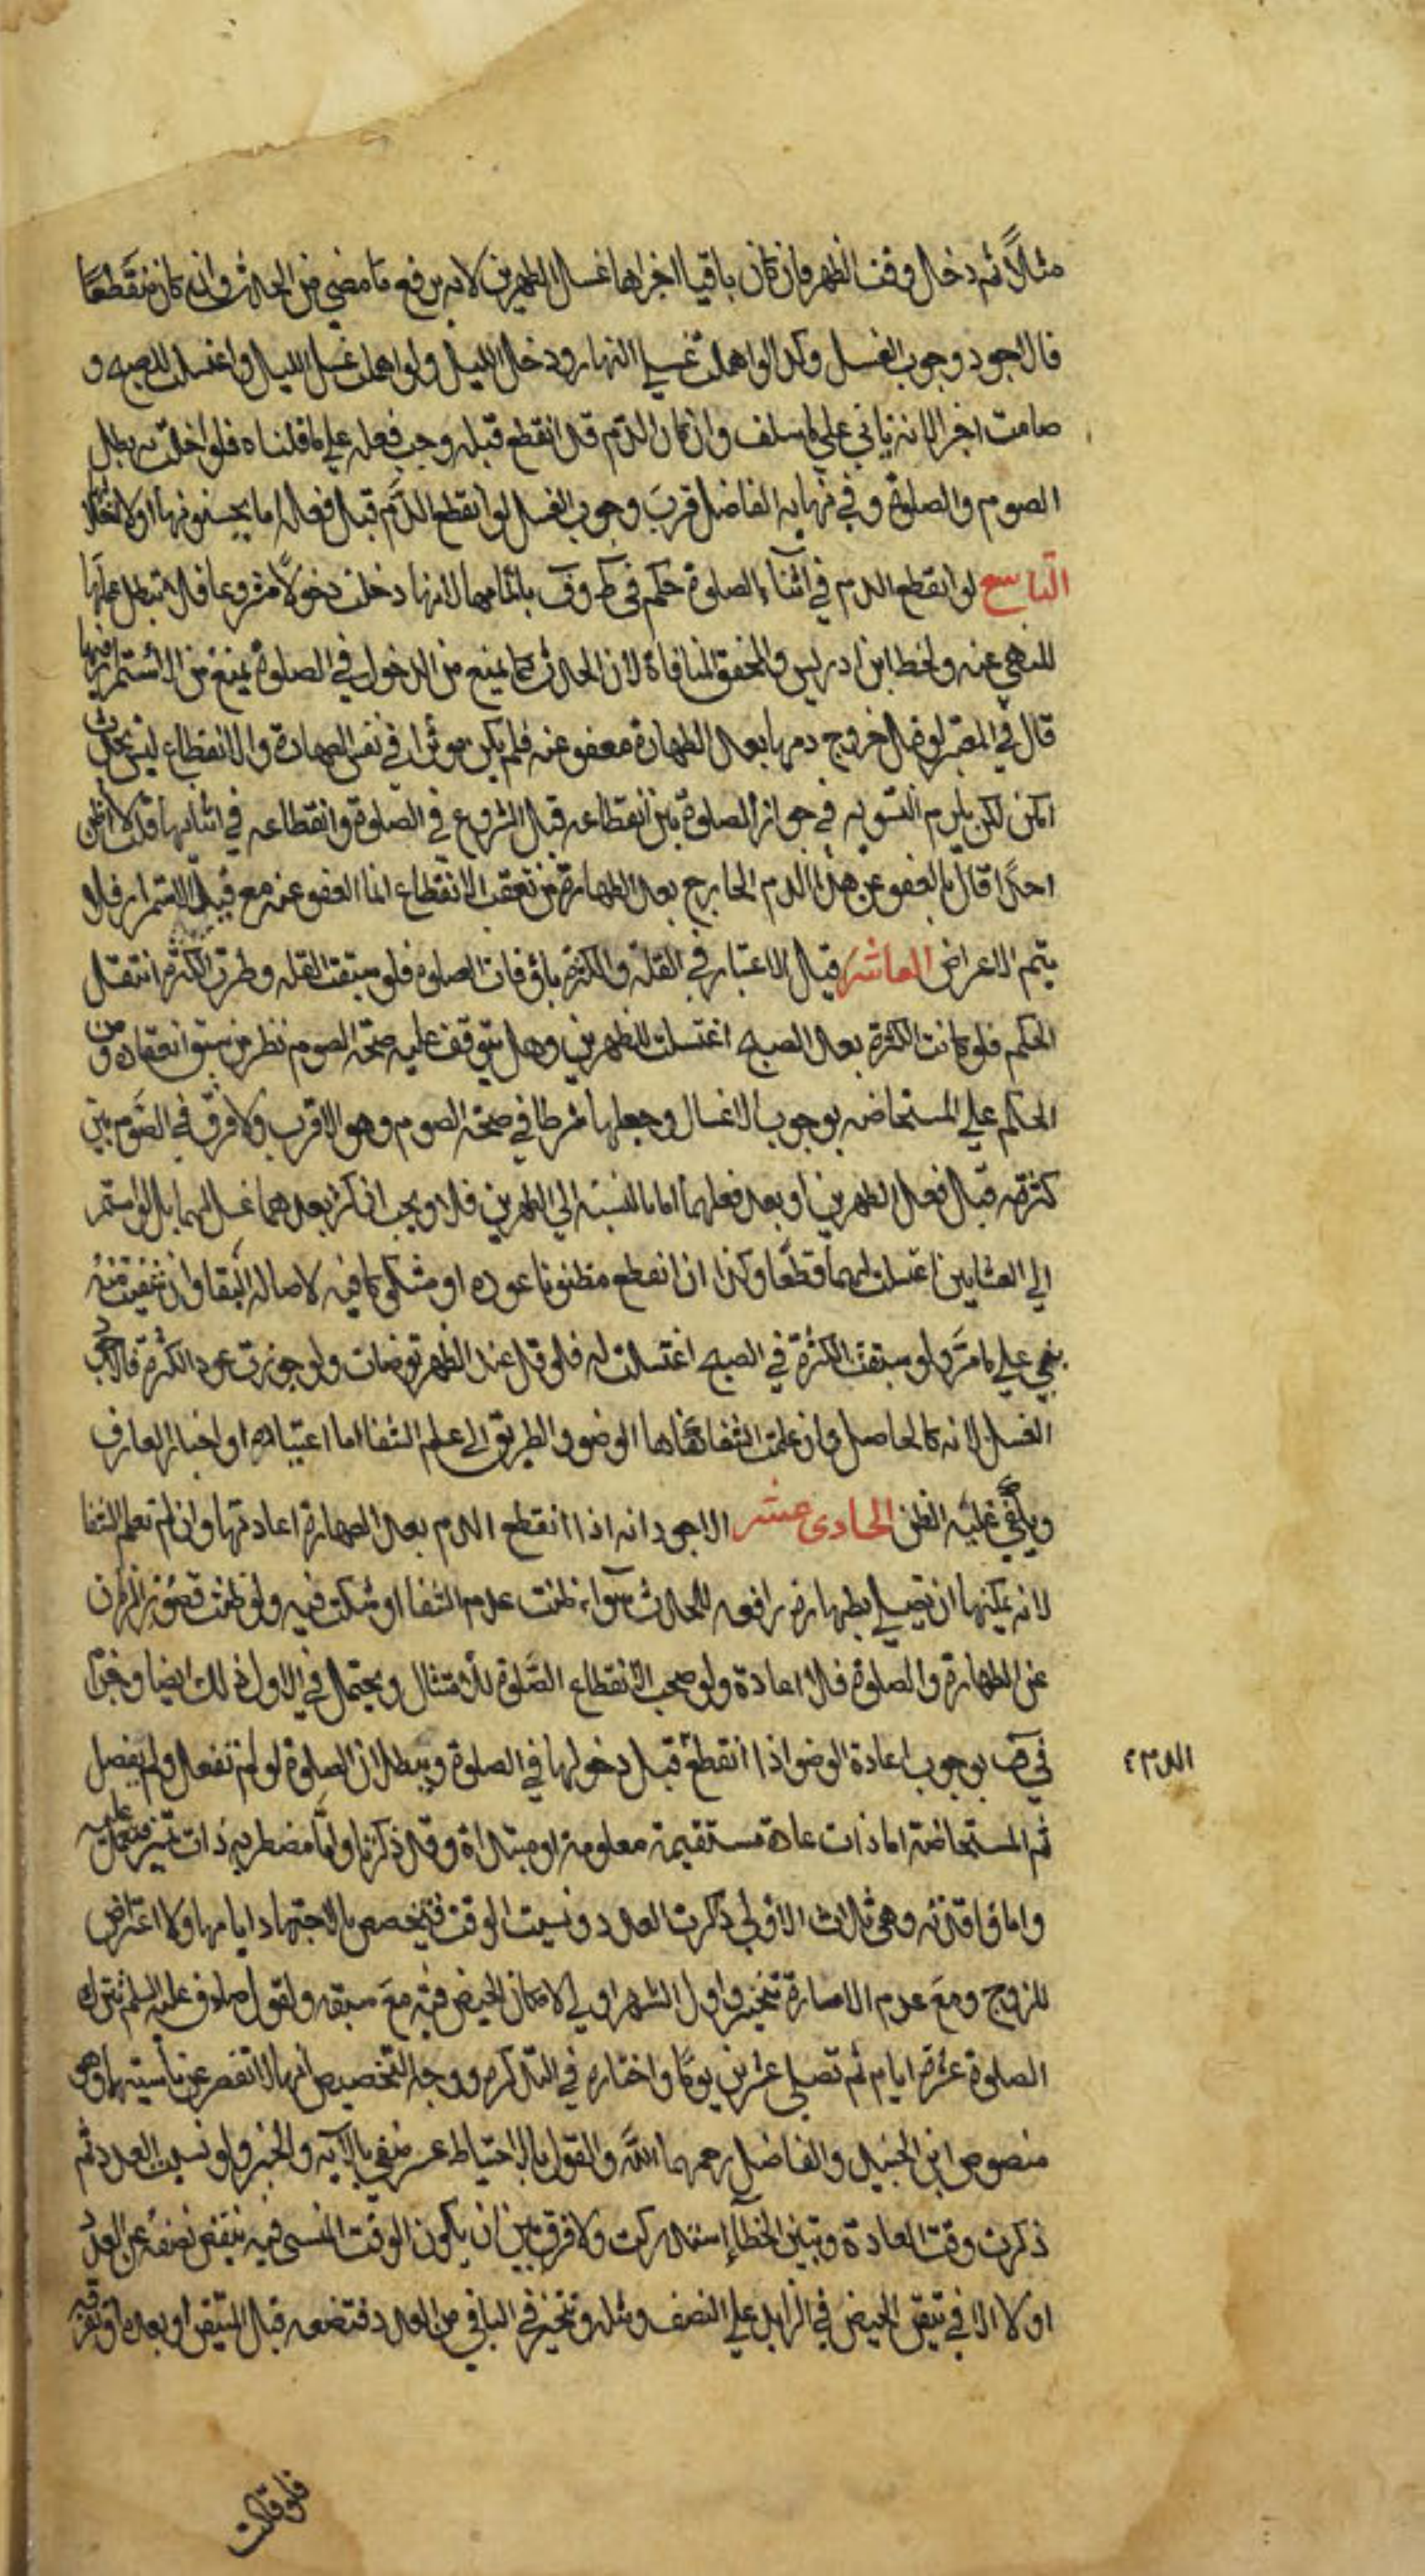 مثلاً ثم دخل وقت الظهر فإن كان باقيا اجزاها غسل الظهرين لانه يرفع ما مضى من الحدث وان كان منقطعًا
فالاجود وجوب الغسل وكذا لو اهملت غسلي النهار ودخل الليل ولو اهملت غسل الليل واغتسلت للصبح و
صامت اجزا لانه ياتي على ما سلف وان كان الدم قد انقطع قبله وجب فعله على ما قلناه فلو اخلت به بطل
الصوم والصلوة وفي نهاية الفاضل قرب وجوب الغسل لو انقطع الدم قبل فعله اما بجنونها او لاغفال
التاسع لو انقطع الدم في اثناء الصلوة حكم في ط وف باتمامها لانها دخلت دخولاً مشروعا فلا تبطل عملها
للنهي عنه ولحظ ابن ادريس والمحقق المنافاة لان الحدث كما يمنع من الدخول في الصلوة يمنع من الاستمرار فيها
قال في المعتبر لو قيل خروج دمها بعد الطهارة معفو عنه فلم يكن موثرا في نقض الطهارة والانقطاع ليس بحدث
امكن لكن يلزم التسوية في جواز الصلوة بين انقطاعه قبل الشروع في الصلوة وانقطاعه في اثنائها قلت لا اظن
احدًا قال بالعفو عن هذا الدم الخارج بعد الطهارة مع تعقب الانقطاع انما العفو عنه مع قيد الاستمرار فلا
يتم الاعراض العاشر قيل الاعتبار في القلة والكثرة باوقات الصلوة فلو سبقت القلة وطرت الكثرة انتقل
الحكم فلو كانت الكثرة بعد الصبح اغتسلت للظهرين وهل يتوقف عليه صحة الصوم نظر من سبق انعقاده ومن
الحكم على المستحاضة بوجوب الاغسال وجعلها شرطا في صحة الصوم وهو الاقرب ولا فرق في الصوم بين
كثرته قبل فعل الظهرين او بعد فعلهما اما بالنسبة الى الظهرين فلا ويجب ان كثر بعدهما غسل لهما بل لو استمر
الي العشايين اغتسلت لهما قطعًا وكذا ان انقطع مظنونا عوده او مشكوكا فيه لاصالة البقا وان شفيت منه
بني على ما مر ولو سبقت الكثرة في الصبح اغتسلت له فلو قل عند الظهر توضات ولو جوزت عود الكثرة فالاجود
الغسل لانه كالحاصل وان علمت الشفا كفاها الوضو والطريق الى علم الشفا اما اعتيادها او اخبار العارف
ويكفي غلبة الظن الحادي عشر الاجود انه اذا انقطع الدم بعد الطهارة اعادتها وان لم تعلم الشفا
لانه يمكنها ان تصلي بطهارة رافعة للحدث سواء ظنت عدم الشفا او شكت فيه ولو ظنت قصور الزمان
عن الطهارة والصلوة فلا اعادة ولو صحب الانقطاع الصلوة للامتثال ويحتمل في الاول ذلك ايضا وجزم
في ف بوجوب اعادة الوضو اذا انقطع قبل دخولها في الصلوة وببطلان الصلوة لو لم تفعل ولم يفصل
ثم المستحاضة اما ذات عادة مستقيمة معلومة او مبتداة وقد ذكرنا واما مضطربة ذات تميز فتعمل عليه
واما فاقدته وهي ثلاث الاولى ذكرت العدد ونسيت الوقت فتخصص بالاجتهاد ايامها ولا اعتراض
للزوج ومع عدم الامارة تتخير واول الشهر اولى لامكان الحيض فيه مع سبقه ولقول الصادق عليه السلم تترك
الصلوة عشرة ايام ثم تصلي عشرين يومًا واختاره في التذكرة ووجه التخصيص انها لا تقصر عن ناسيتهما وهو
منصوص ابن الجنيد والفاضل رحمهما الله والقول بالاحتياط عسر منفي بالاية والخبر ولو نسيت العدد ثم
ذكرت وقت العادة وتبين الخطأ استدركت ولا فرق بين ان يكون الوقت المنسي فيه ينقص نصفه عن العدد
او لا الا في تيقن الحيض في الزايد على النصف ومثله وتتخير في الباقي من العدد فتضعه قبل المتيقن او بعده او تفرقه
فلو قالت